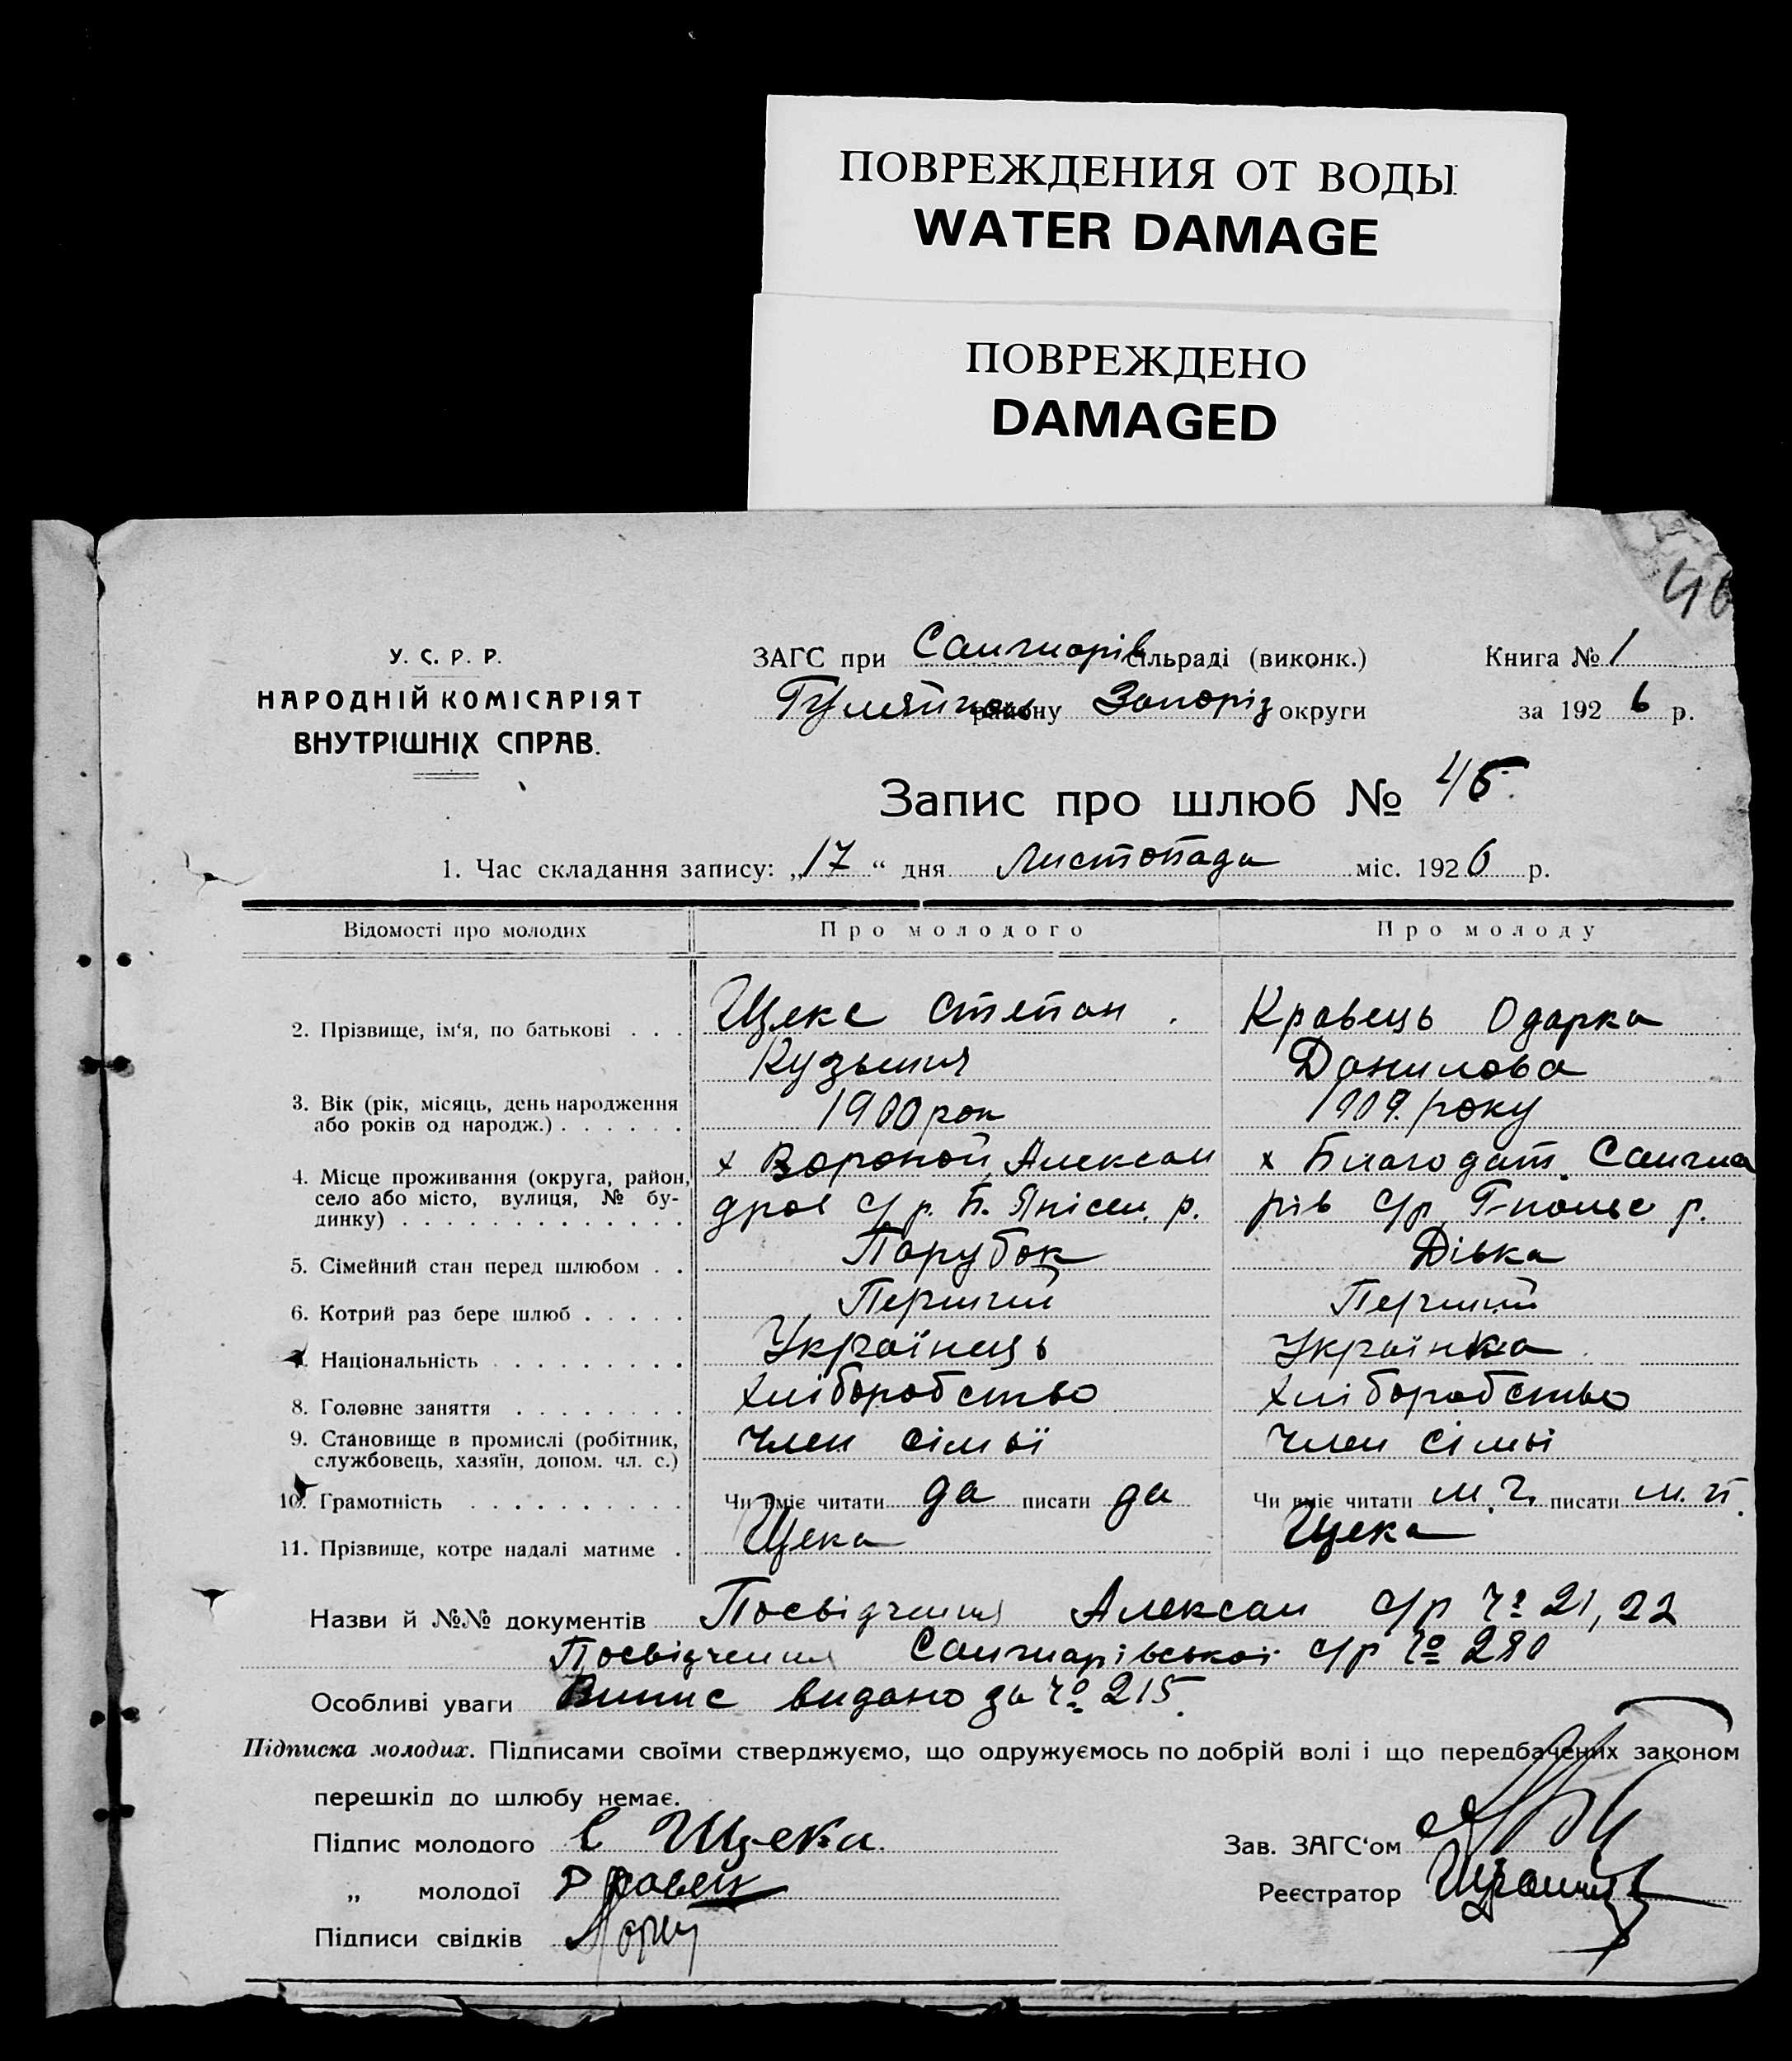 ПОВРЕЖДЕНИЯ ОТ ВОДЫ
WATER DAMAGE
ПОВРЕЖДЕНО
DAMAGED
46
У. С. Р. Р.
НАРОДНІЙ КОМІСАРІЯТ
ВНУТРІШНІХ СПРАВ.
ЗАГС при Санжарів сільраді (виконк.)
Гуляйпольс району Запоріз округи
Книга № 1
за 1926 р.
Запис про шлюб № 45.
1. Час складання запису: „17“ дня Листопада міс. 1926 р.
Відомості про молодих Про молодого Про молоду
2. Прізвище, ім‘я, по батькові . . . Щека Степан Кравець Одарка
Кузьмич Данилова
3. Вік (рік, місяць, день народження 1900 рок 1909 року
або років од народж.) . . . . . .
4. Місце проживання (округа, район, х Вороной, Алексан х Благодат. Санжа
село або місто, вулиця, № бу- дров с/р. Б. Янісел. р. рів с/р Г-польс р.
динку) . . . . . . . . . . . . .
5. Сімейний стан перед шлюбом . . Парубок Дівка
6. Котрий раз бере шлюб . . . . . Перший Перший
7. Національність . . . . . . . . . Українець Українка
8. Головне заняття . . . . . . . . Хліборобство Хліборобство
9. Становище в промислі (робітник, Член сімьї Член сімьі
службовець, хазяїн, допом. чл. с.)
10. Грамотність . . . . . . . . . . Чи вміє читати да писати да Чи вміє читати м. г. писати м. п.
11. Прізвище, котре надалі матиме . Щека Щека
Назви й №№ документів Посвідчення Алексан с/р № 21, 22
Посвідчення Санжарівської с/р № 280
Особливі уваги Випис видано за № 215.
Підписка молодих. Підписами своїми стверджуємо, що одружуємось по добрій волі і що передбачених законом
перешкід до шлюбу немає.
Підпис молодого Щека
Зав. ЗАГС‘ом
„ молодої
Реєстратор
Підписи свідків